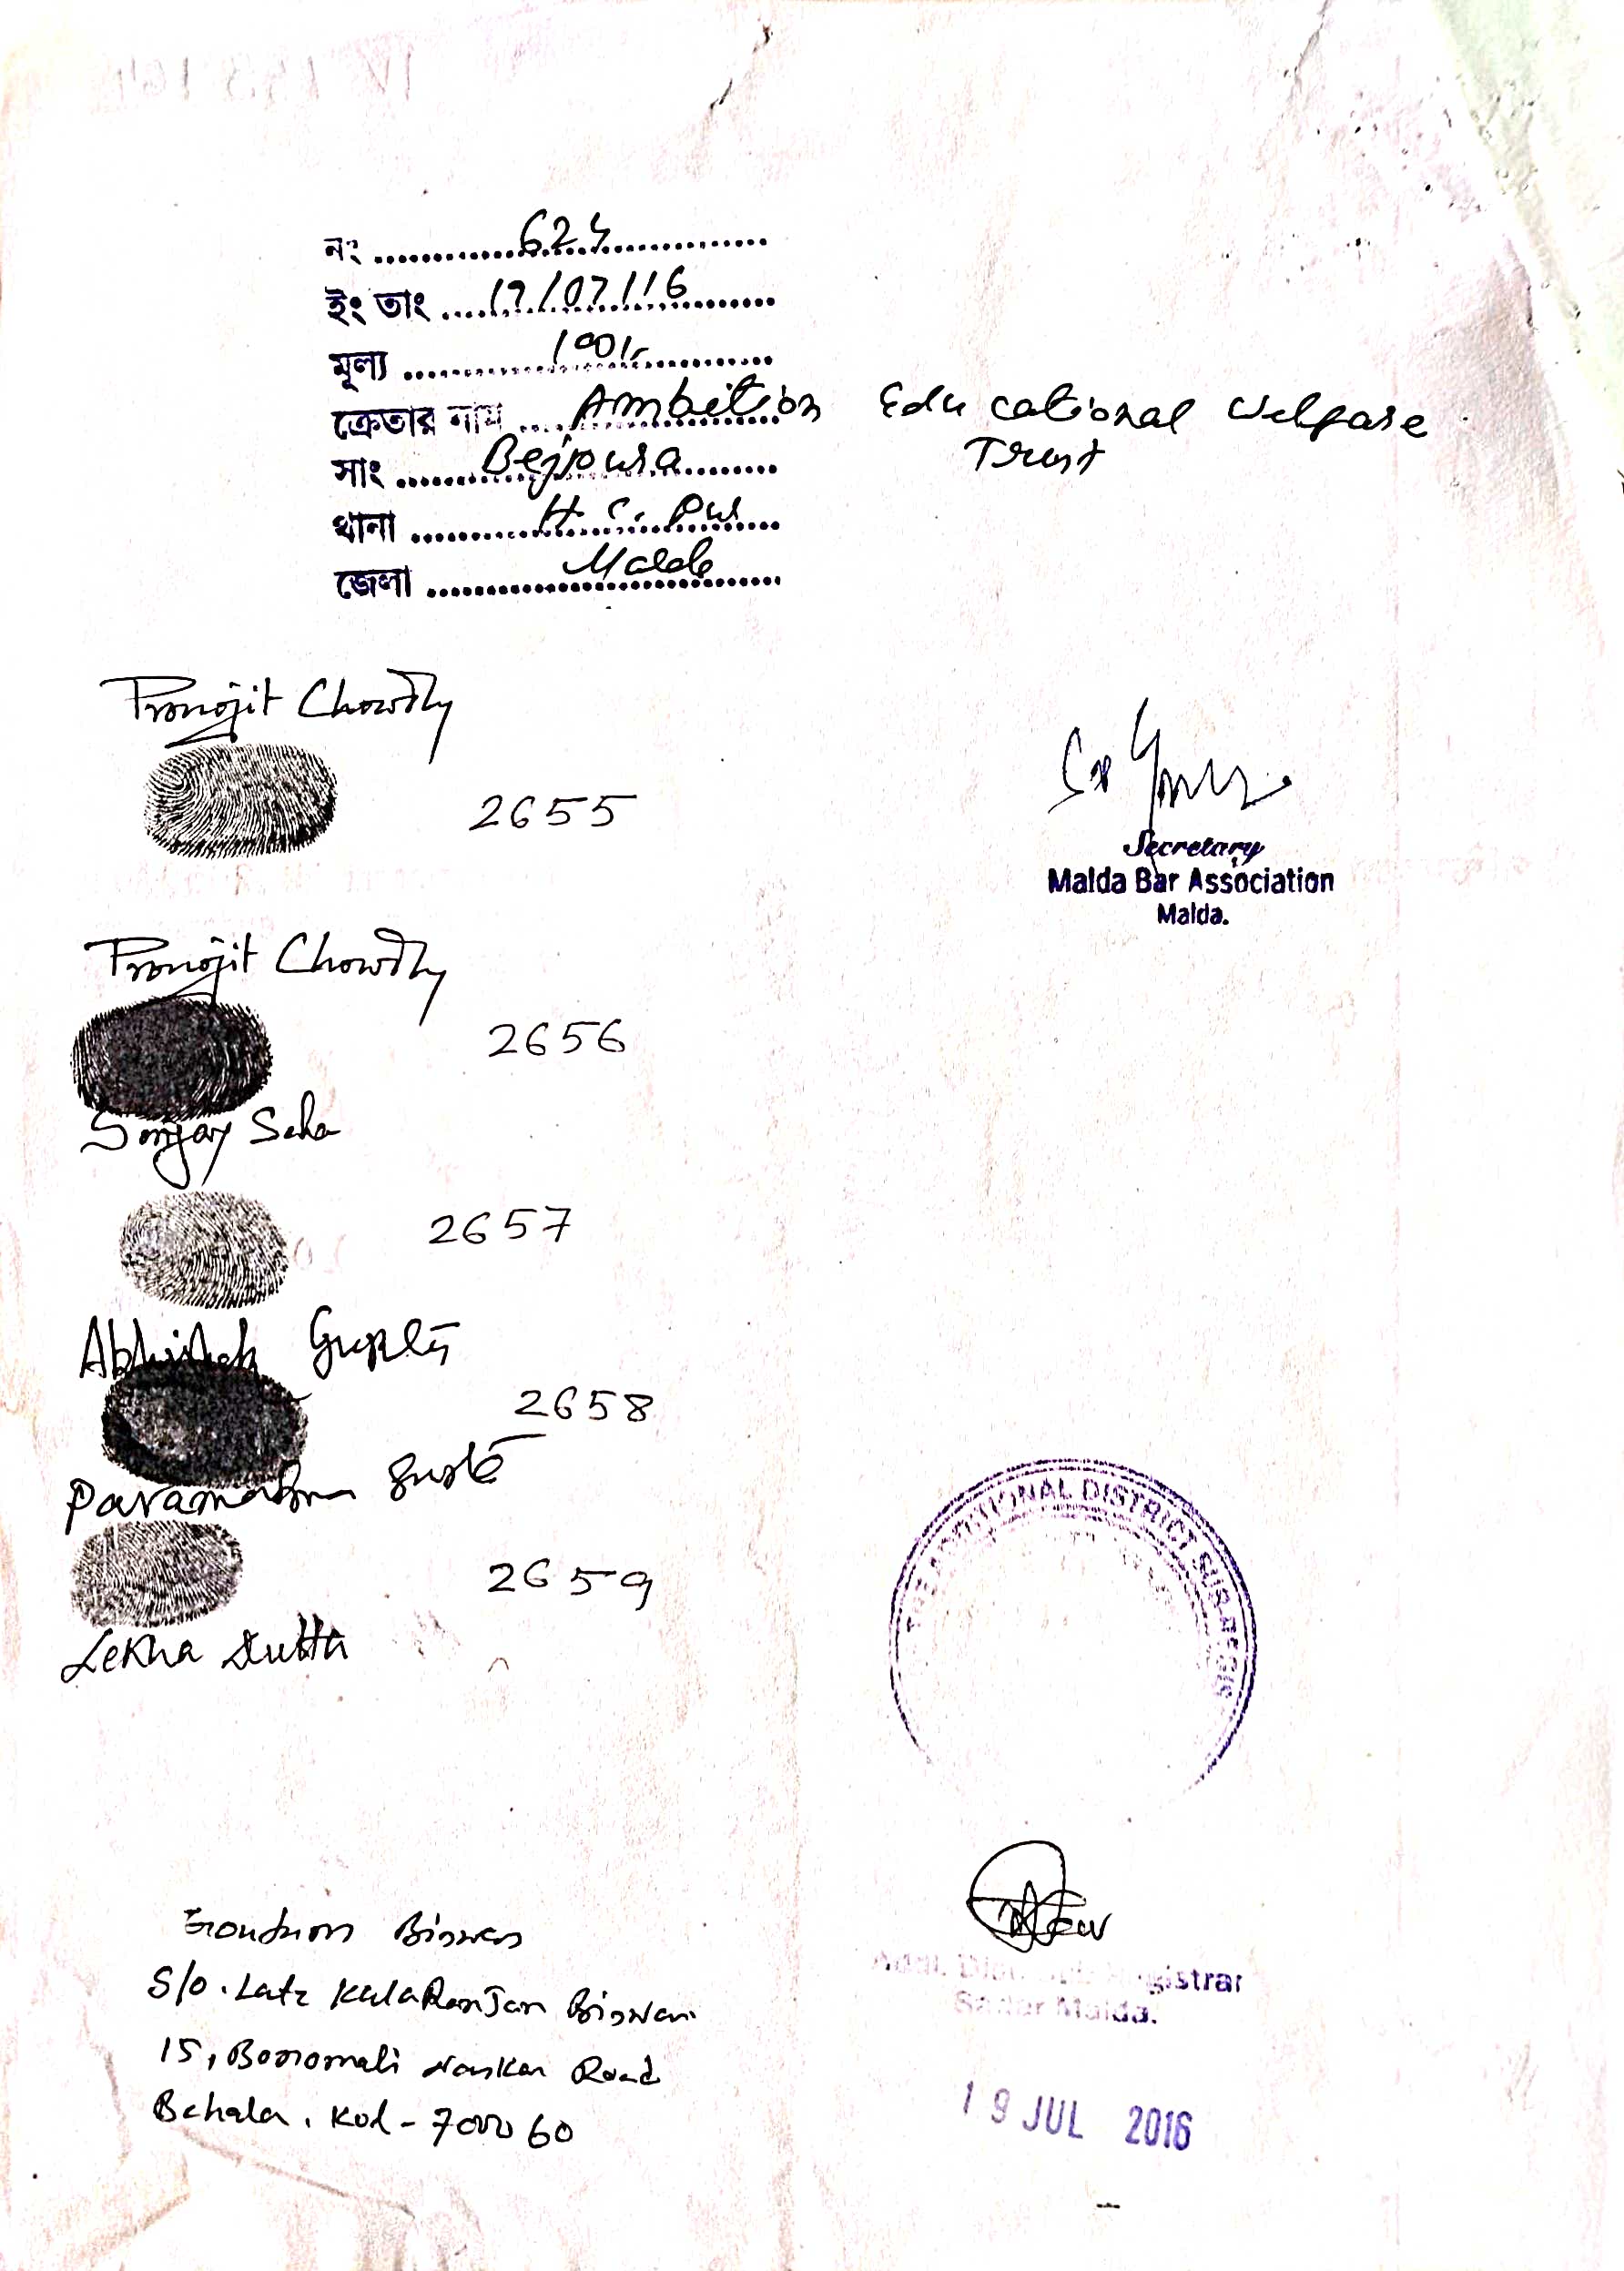 নং 624
ইং তাং 19/07/16
মূল্য 100/-
ক্রেতার নাম Ambition Educational Welfare
Trust
সাং Bejpura
থানা H. C. Pur
জেলা Malda
Pronojit Chowdhy
2655
Secretary
Malda Bar Association
Malda.
Pronojit Chowdhy
2656
Sanjay Saha
2657
Abhishek Gupta
2658
Paramatma Gupta
2659
Lekha Dutta
THE ADDITIONAL DISTRICT SUB REGIS
Goutam Biswas
S/o. Late Kala Ranjan Biswas
15, Bonomali Naskar Road
Behala. Kol - 700060
Addl. Dist. Sub Registrar
Sadar Malda.
19 JUL 2016